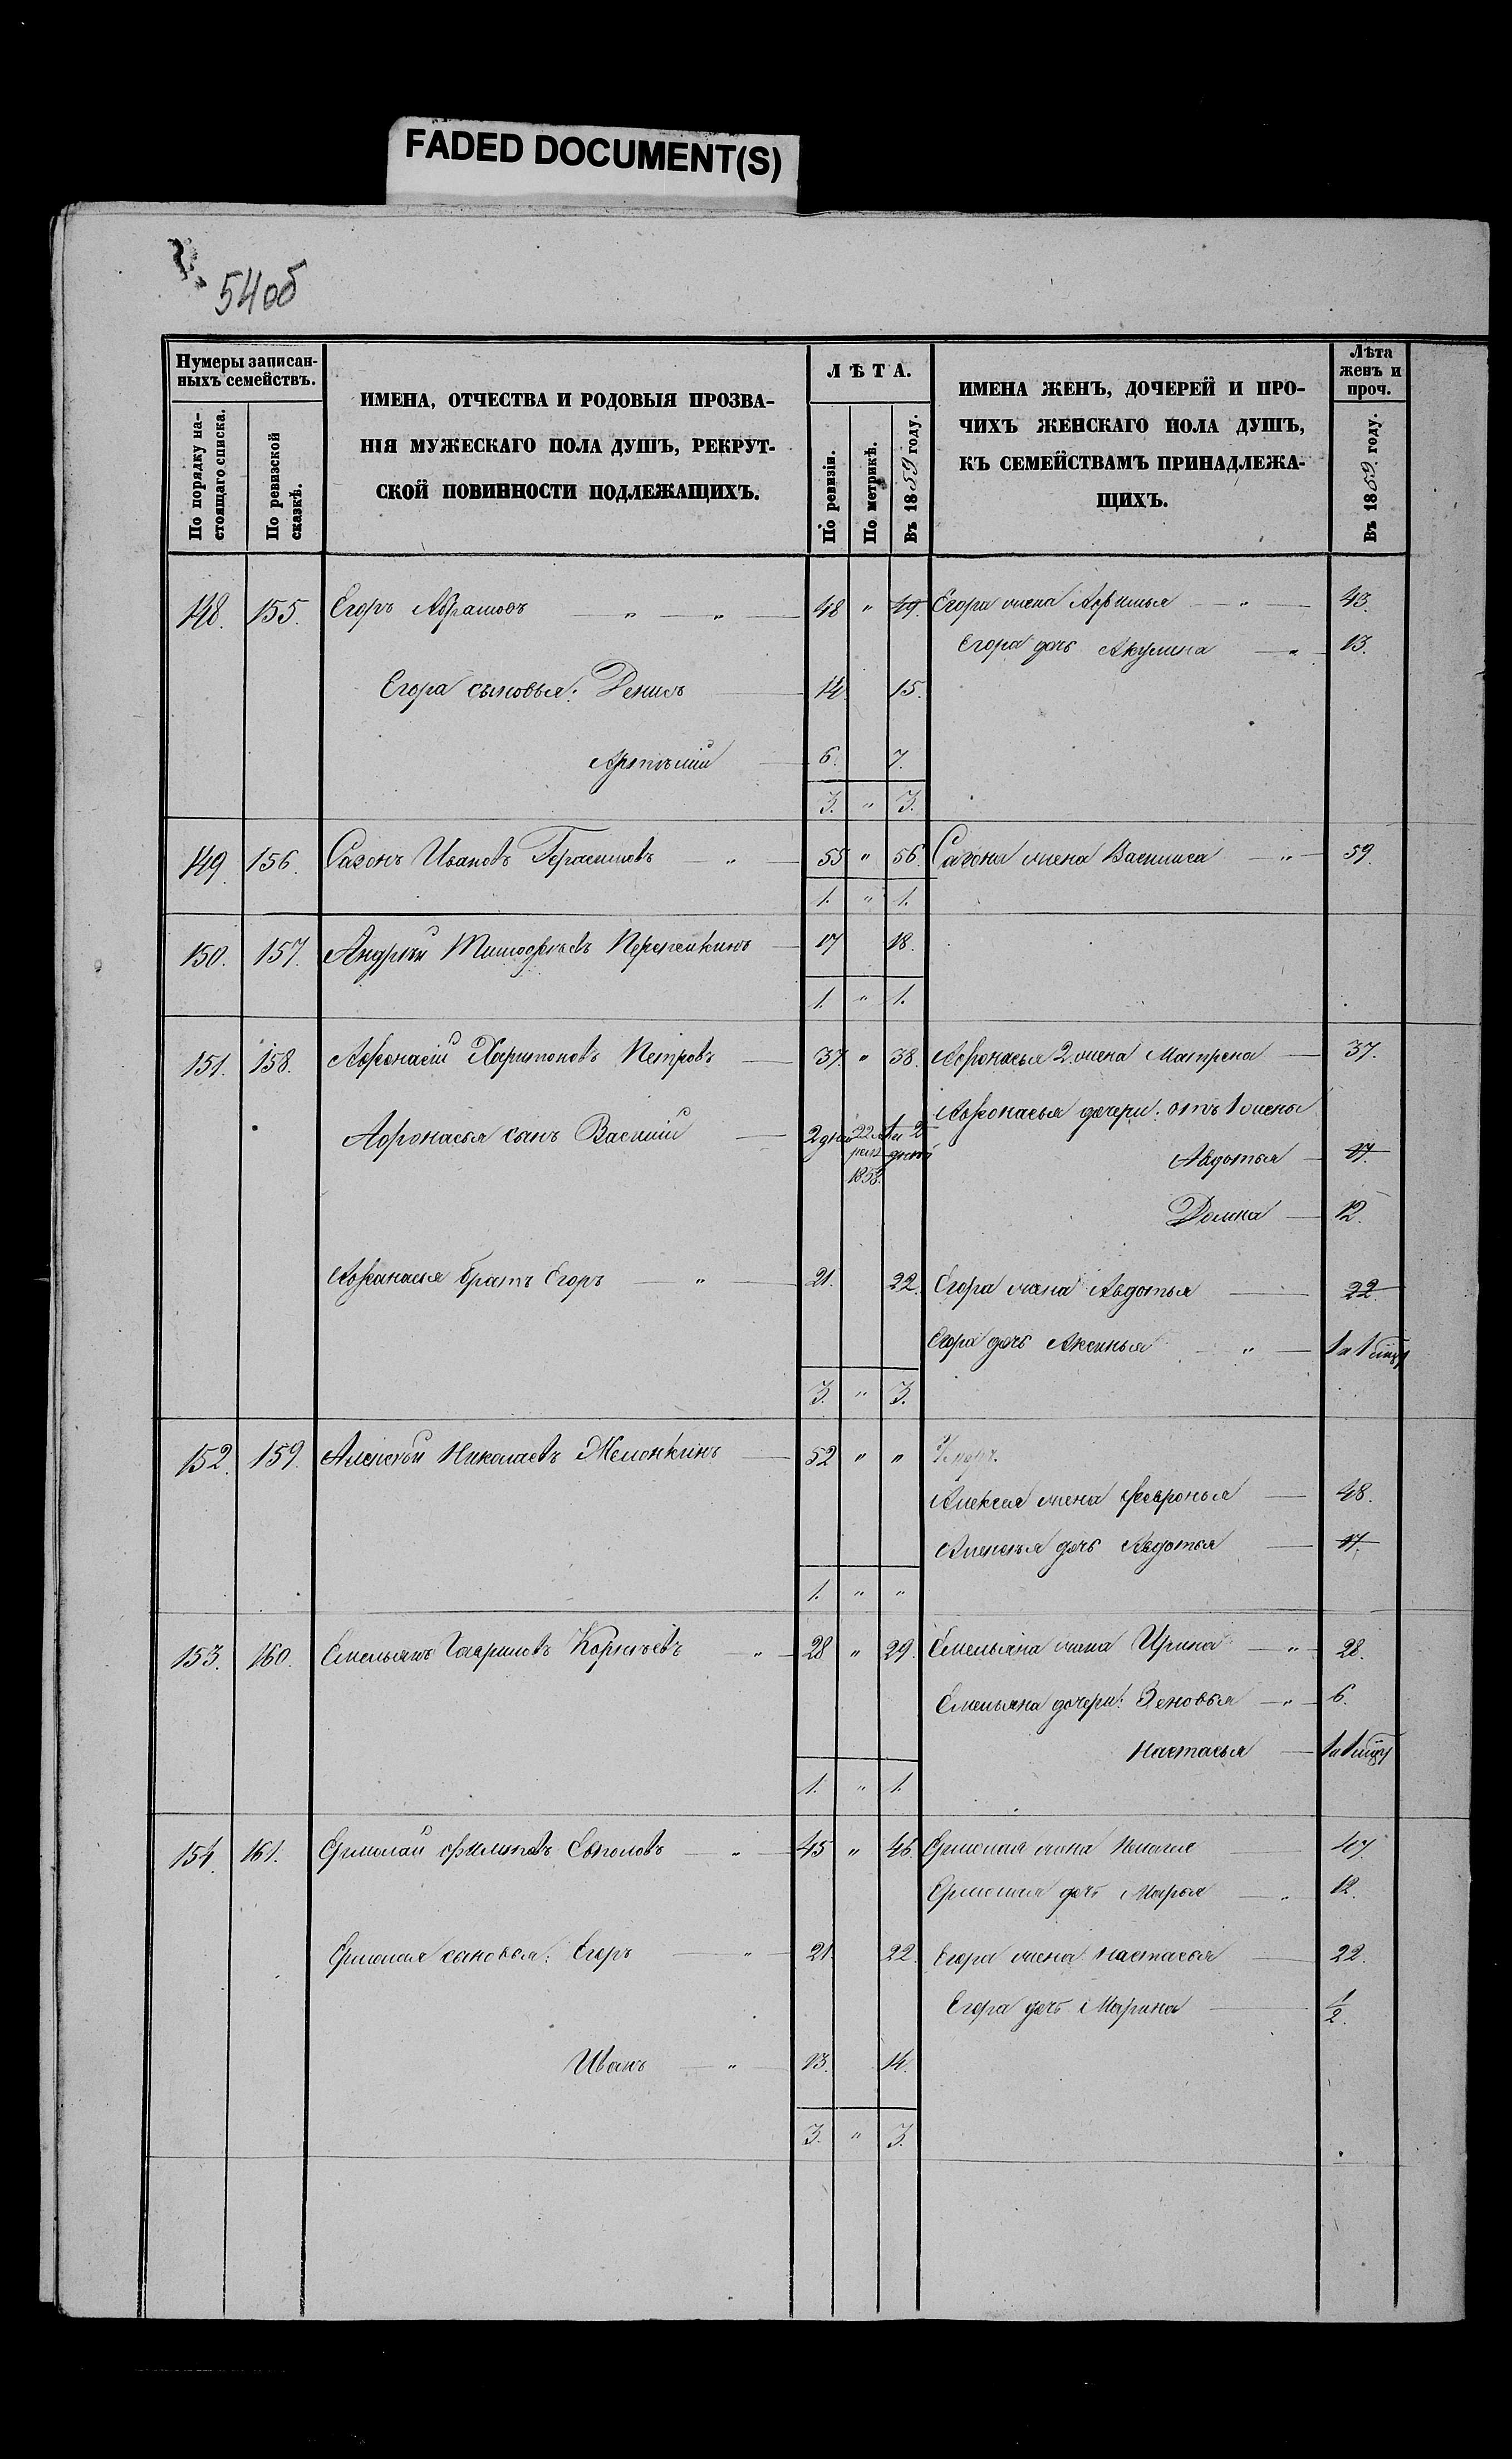 FADED DOCUMENT(S)
54об
Нумеры записан-
ныхъ семействъ.
По порядку на-
стоящаго списка.
По ревизской
сказкѣ.
ИМЕНА, ОТЧЕСТВА И РОДОВЫЯ ПРОЗВА-
НІЯ МУЖЕСКАГО ПОЛА ДУШЪ, РЕКРУТ-
СКОЙ ПОВИННОСТИ ПОДЛЕЖАЩИХЪ.
ЛѢТА.
По ревизіи.
По метрикѣ.
Въ 1859 году.
ИМЕНА ЖЕНЪ, ДОЧЕРЕЙ И ПРО-
ЧИХЪ ЖЕНСКАГО ПОЛА ДУШЪ,
КЪ СЕМЕЙСТВАМЪ ПРИНАДЛЕЖА-
ЩИХЪ.
Лѣта
женъ и
проч.
Въ 1859 году.
148. 155. Егоръ Абрамовъ 48 " 49. Егора жена Афимья 43.
Егора дочь Акулина 13.
Егора сыновья: Денисъ 14 15.
Артемій 6. 7.
3. " 3.
149. 156. Сазонъ Ивановъ Герасимовъ 55 " 56. Сазона жена Василиса 59.
1. " 1.
150. 157. Андрей Тимофѣевъ 17 18.
1. " 1.
151. 158. Афонасій Харитоновъ Петровъ 37. " 38. Афонасья 2. жена Матрена 37.
Афонасья дочери: отъ 1 жены
Афонасья сынъ Василій 2 дней 22 1858. 1 и 2 дней
Авдотья 17.
Домна 12.
Афонасья братъ Егоръ 21. 22. Егора жена Авдотья 22.
Егора дочь Аксинья 1 и 1 мцу
3. " 3.
152. 159. Алексѣй Николаевъ 52 " "
Алексея жена Февронья 48.
Алексея дочь Авдотья 17.
1. " "
153. 160. Емельянъ Гавриловъ Корнѣевъ 28 " 29. Емельяна жена Ирина 28.
Емельяна дочери: Зеновья 6.
Настасья 1 и 1 мцу
1. " 1.
154. 161. Ермолай Филиповъ 45 " 46. Ермолая жена 47.
Ермолая дочь Марья 12.
Ермолая сыновья: Егоръ 21. 22. Егора жена Настасья 22.
Егора дочь Марина 1/2.
Иванъ 13. 14.
3. " 3.